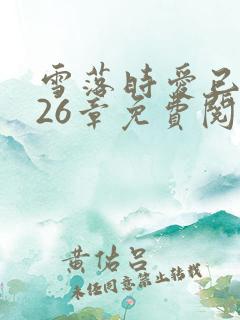 雪落時愛已
26章免費閱
黄佑吕
未经同意禁止转载